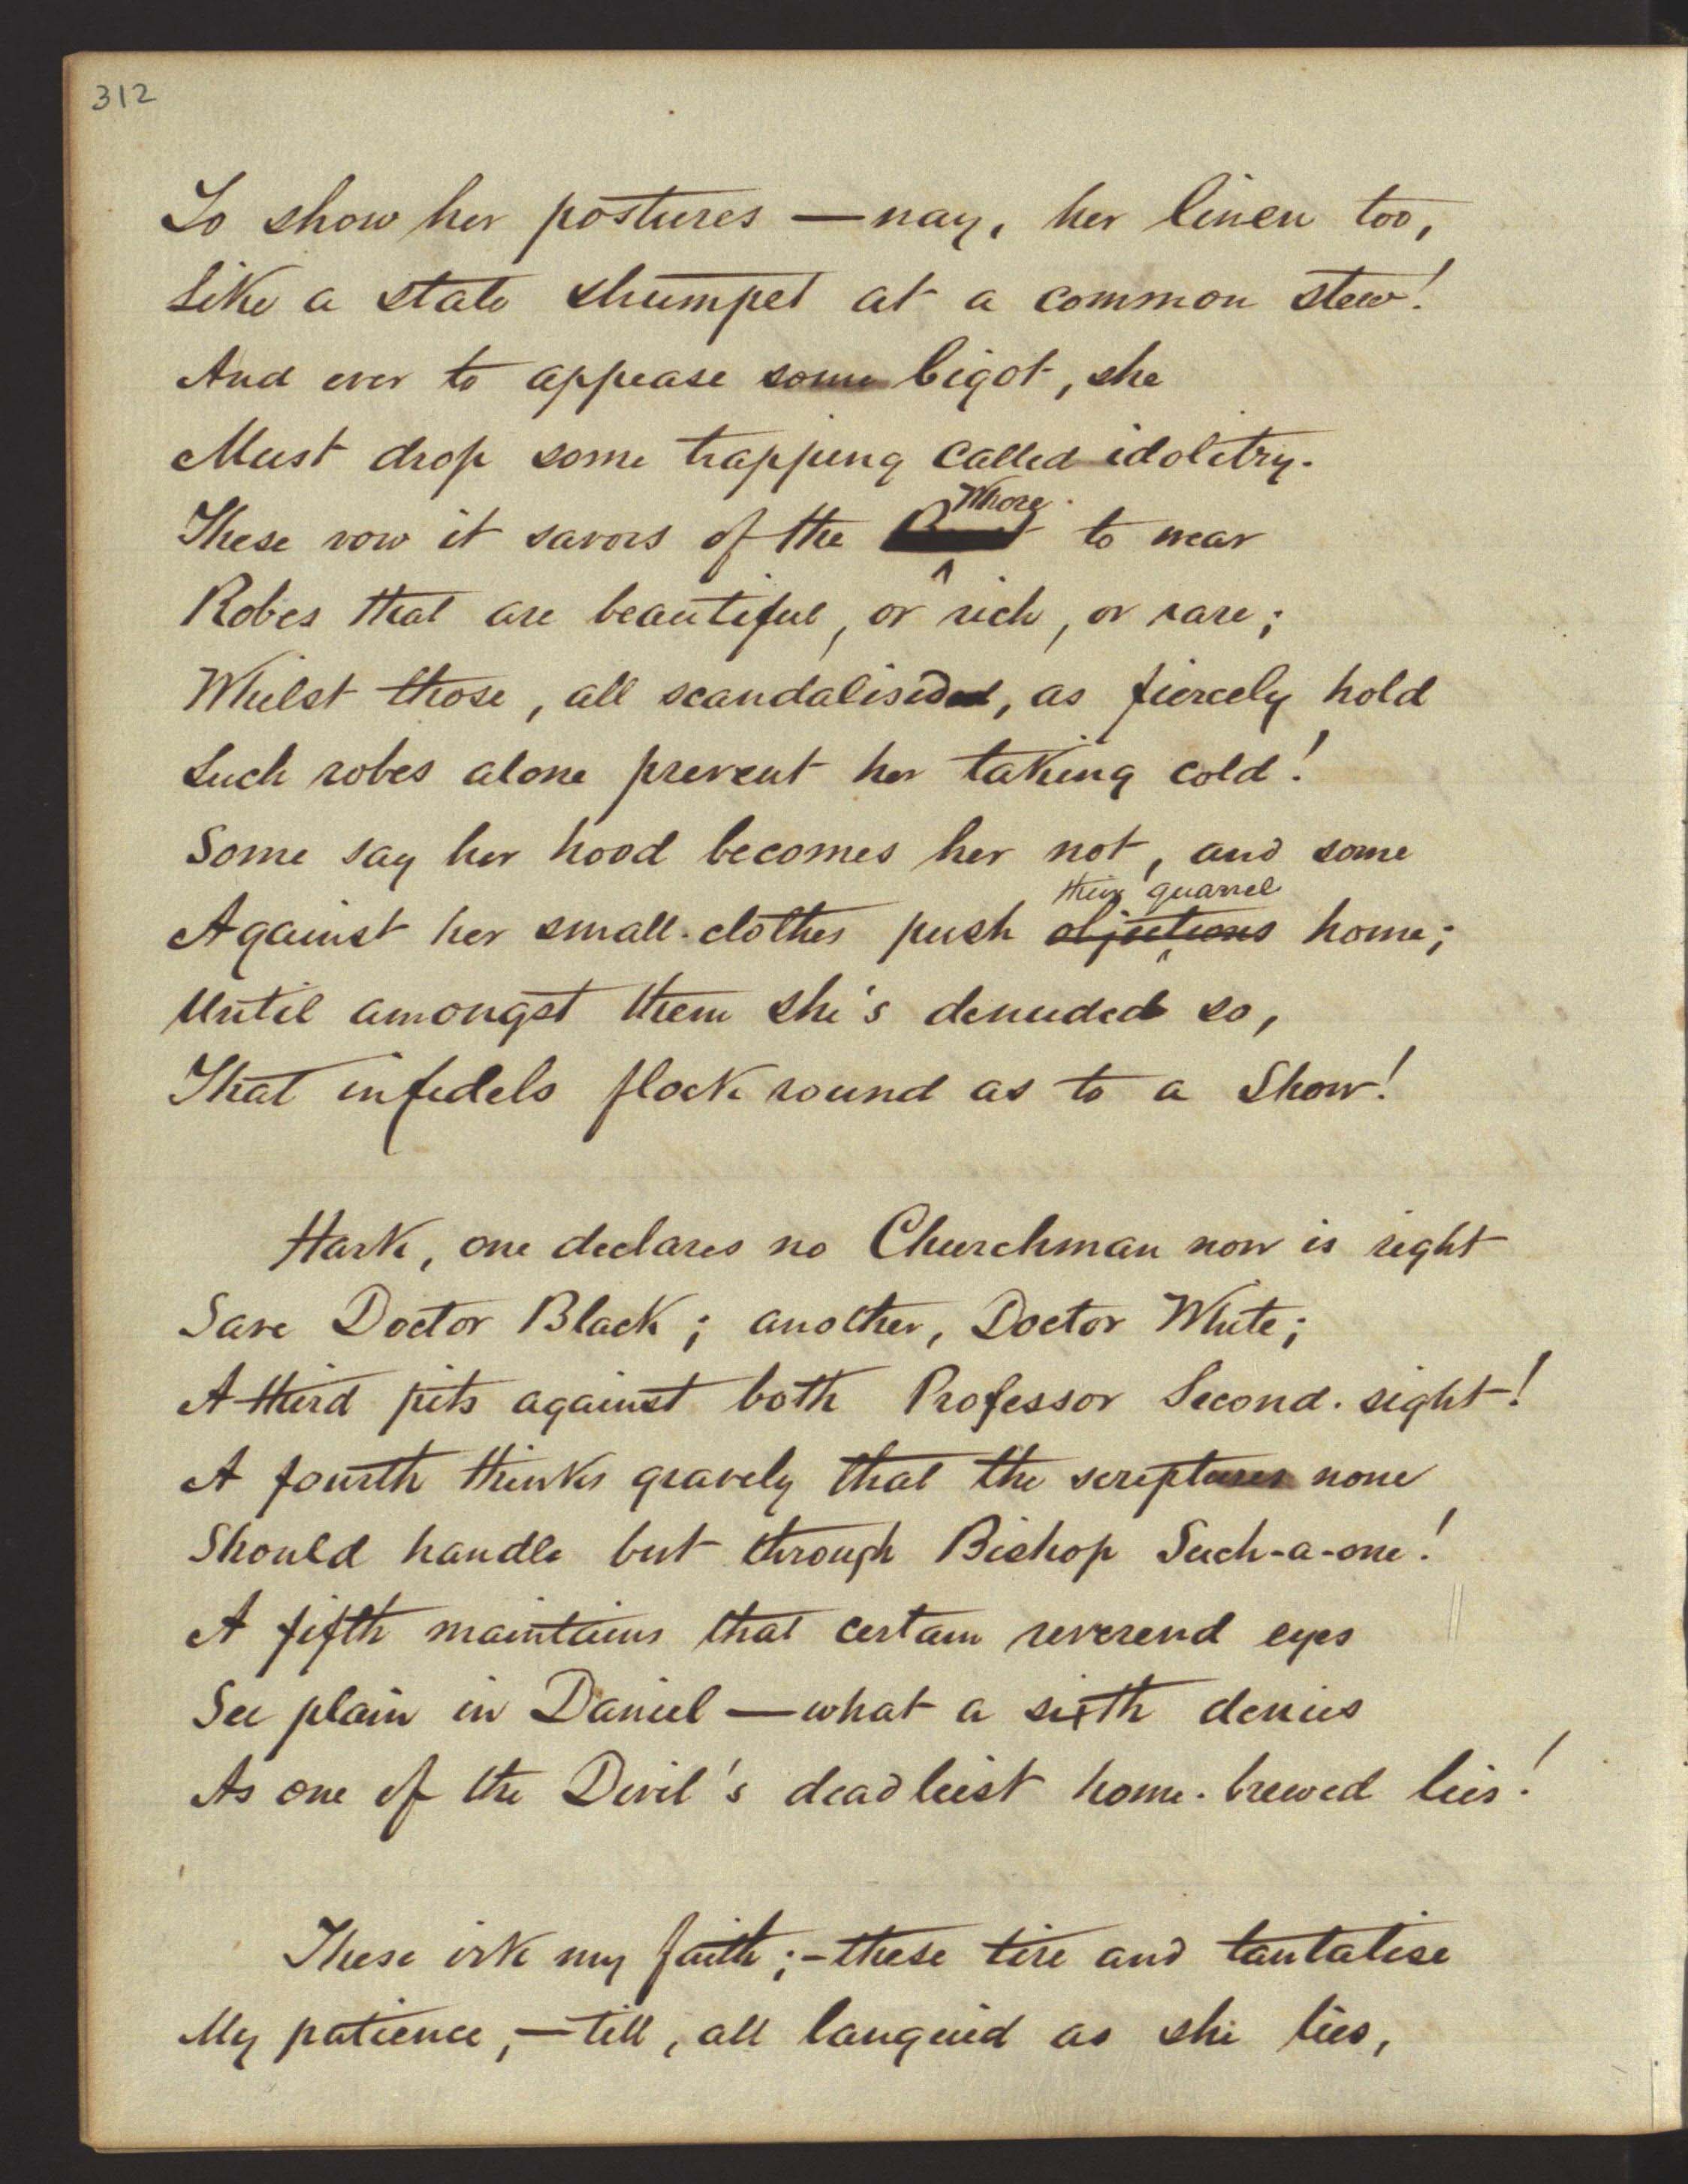 312
To show her postures — nay, her linen too,
Like a stale strumpet at a common stew!
And ever to appease some bigot, she
Must drop some trapping called idolitry.
Whore
These vow it savors of the to wear
Robes that are beautiful, or rich, or rare;
Whilst those, all scandalised, as fiercely hold
Such robes alone prevent her taking cold!
Some say her hood becomes her not, and some
their quarrel
Against her small-clothes push objections home;
Until amongst them she's denuded so,
That infidels flock round as to a Show!
Hark, one declares no Churchman now is right
Save Doctor Black; another, Doctor White;
A third pits against both Professor Second-sight!
A fourth thinks gravely that the scriptures none
Should handle but through Bishop Such-a-one!
A fifth maintains that certain reverend eyes
See plain in Daniel — what a sixth denies
As one of the Devil's deadliest home-brewed lies!
These irk my faith; – these tire and tantalise
My patience, — till, all languid as she lies,